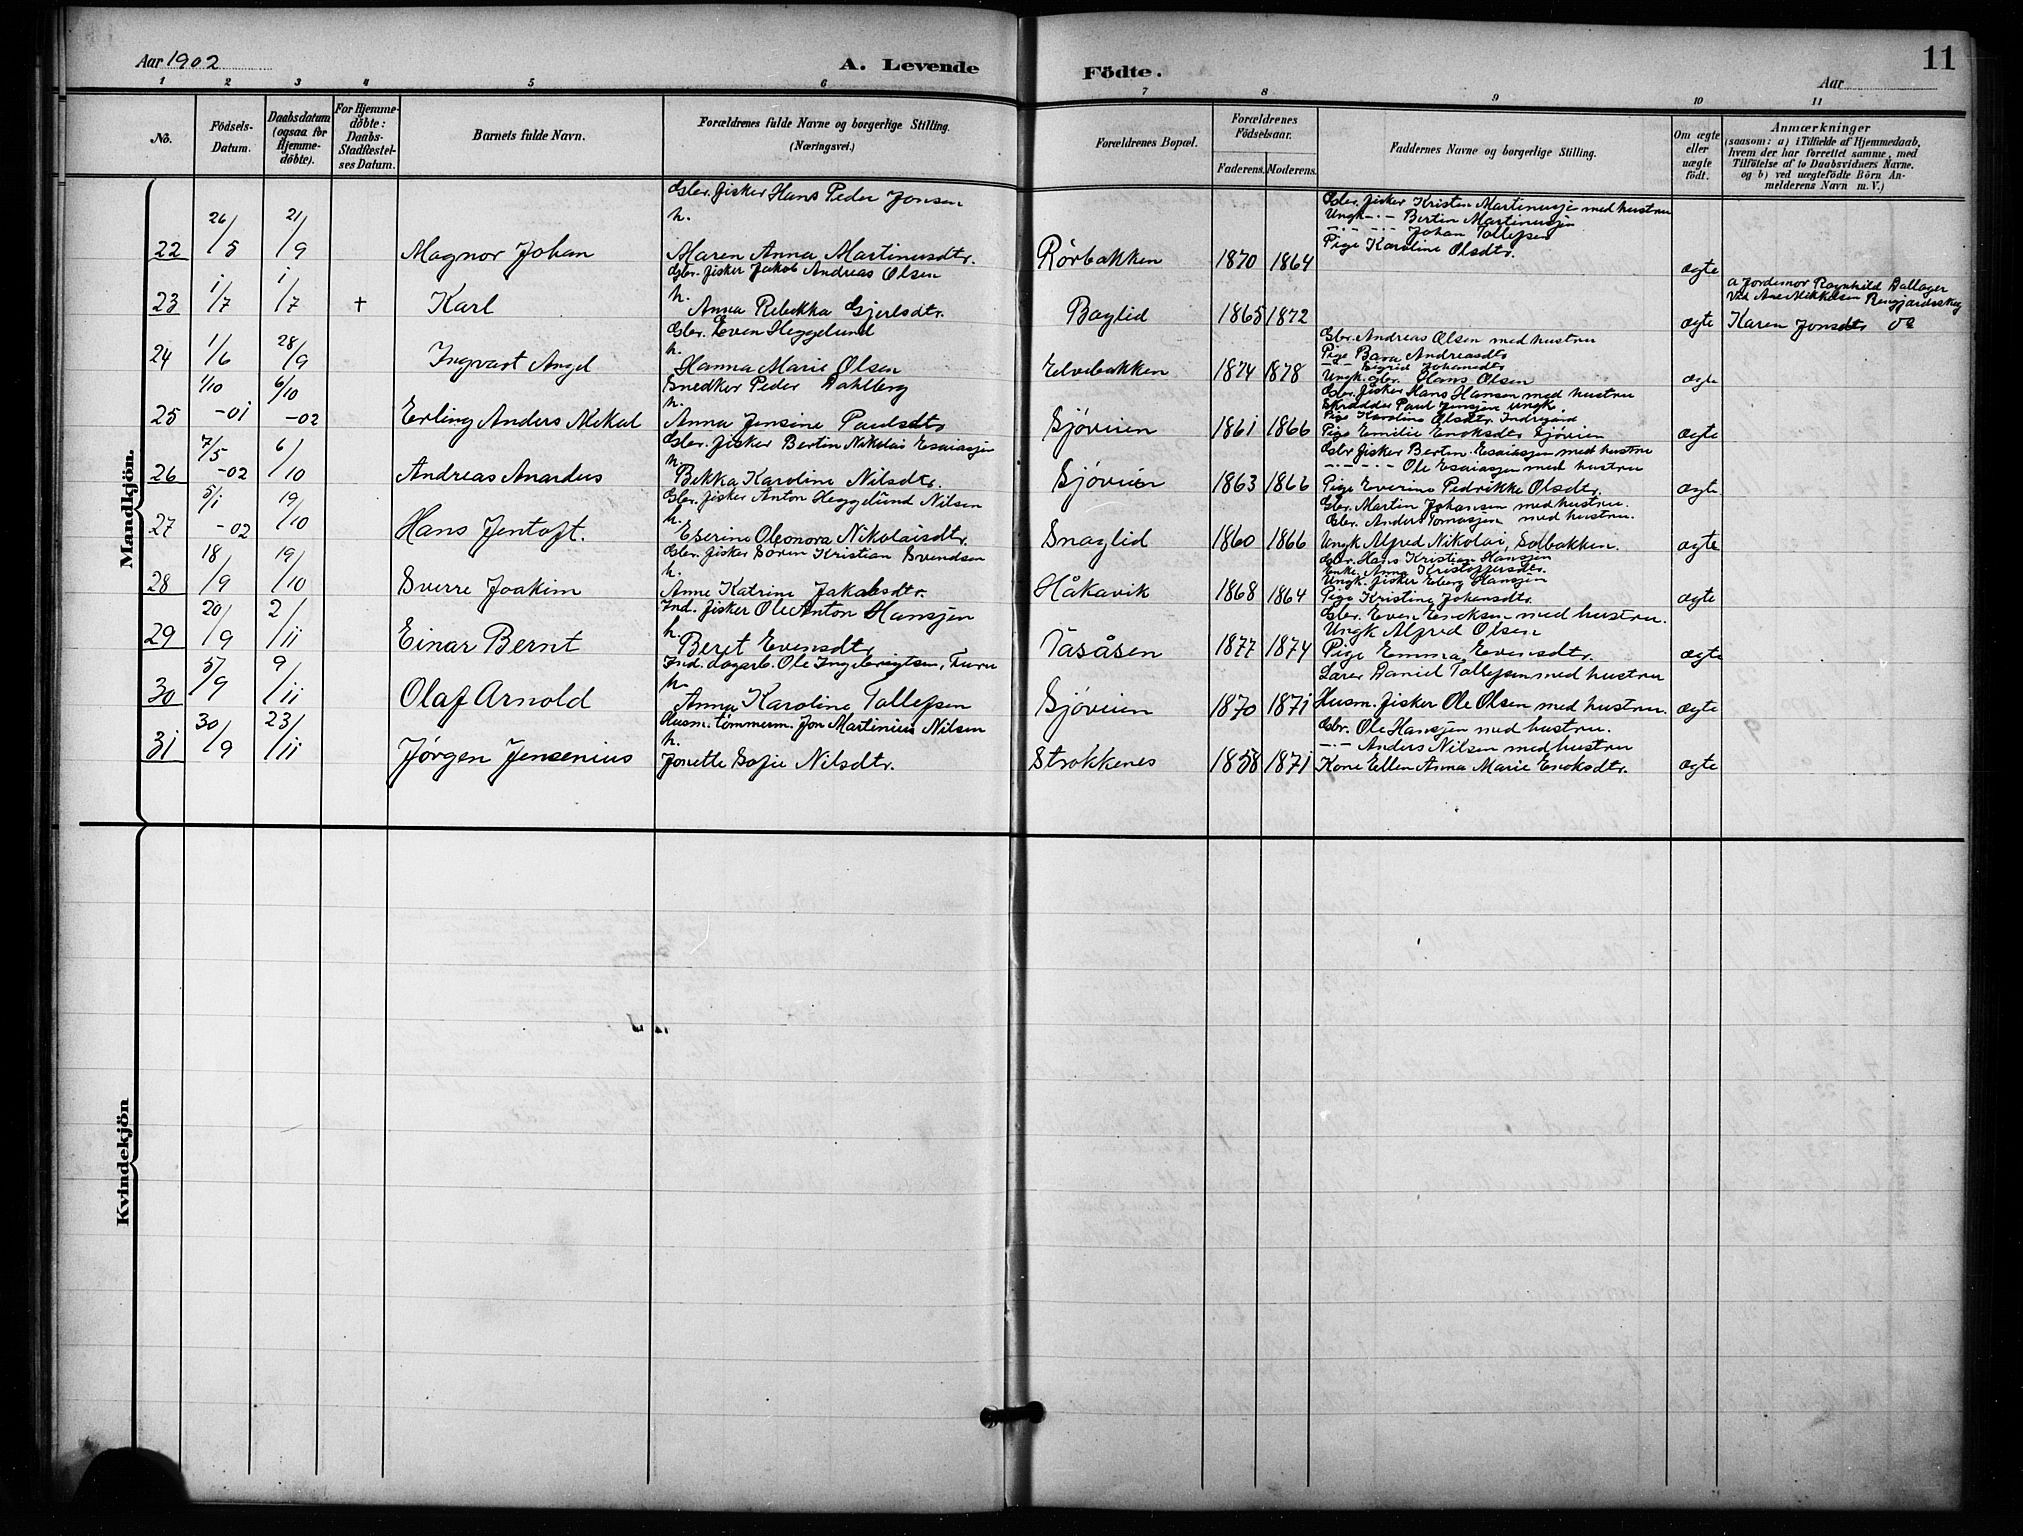 Aar 1902
A. Levende
Födte.
Aar
11
1 2 3 4 5 6 7 8 9 10 11
No.
Födsels-
Datum.
Daabsdatum
(ogsaa for
Hjemme-
döbte).
For Hjemme-
döbte:
Daabs-
Stadfæstel-
ses Datum.
Barnets fulde Navn.
Forældrenes fulde Navne og borgerlige Stilling.
(Næringsvei.)
Forældrenes Bopæl.
Forældrenes
Födselsaar.
Faderens. Moderens.
Faddernes Navne og borgerlige Stilling.
Om ægte
eller
uægte
födt.
Anmærkninger
(saasom: a) i Tilfælde af Hjemmedaab,
hvem der har forrettet samme, med
Tilföielse af to Daabsvidners Navne.
og b) ved uægtefödte Börn An-
melderens Navn m. V.)
Mandkjön.
22 26/5 21/9 Magnor Johan
Gbr. fisker Hans Peder Jonsen
h.
Maren Anna Martinusdtr.
Rørbakken 1870 1864
Gbr. fisker Kristen Martinussen med hustru
Ungk -·- Bertin Martinussen
-·- -·- Johan Tollefsen
Pige Karoline Olsdtr.
ægte
23 1/7 1/7 + Karl
Gbr. fisker Jakob Andreas Olsen
h.
Anna Rebekka Gjertsdtr.
Baglid 1865 1872
ægte
a Jordemor Ragnhild Dallager
Ved Ane Mikkelsen
Karen Jonsdtr
24 1/6 28/9 Ingvart Angel
Gbr. Even Heggelund
h.
Hanna Marie Olsen
Elvebakken 1874 1878
Gbr. Andreas Olsen med hustru
Pige Bara Andreasdtr
-·- Sigrid Johansdtr
Ungk. gbr. Hans Olsen
ægte
25 1/10 -01 6/10 -02 Erling Anders Mekal
Snedker Peder Dahlberg
h.
Anna Jensine Paulsdtr
Sjøveien 1861 1866
Gbr. fisker Hans Hansen med hustru
Skrædder Paul Jensen ungk.
Pige Karoline Olsdtr. Indregård
Pige Emilie Enoksdtr Sjøveien
ægte
26 7/5 -02 6/10 Andreas Anardus
Gbr. fisker Bertin Nikolai Esaiassen
h.
Bekka Karoline Nilsdtr.
Sjøveien 1863 1866
Gbr fisker Bertin Esaiassen med hustru
-·- -·- Ole Esaiassen med hustru
Pige Everine Pedrikke Olsdtr.
ægte
27 5/1 -02 19/10 Hans Jentoft.
Gbr. fisker Anton Heggelund Nilsen
h.
Eserine Oleonora Nikolaisdtr.
Snaglid 1860 1866
Gbr. Martin Johansen med hustru.
Gbr. Anders Tomassen med hustru.
Ungk Alfred Nikolai, Solbakken.
ægte
28 18/9 19/10 Sverre Joakim
Gbr. fisker Sören Kristian Svendsen
h.
Anne Katrine Jakobsdtr.
Håkavik 1868 1864
Gbr. Hans Kristian Hansen
Enke Anna Kristoffersdtr.
Ungk. fisker Eberg Hansen
Pige Kristine Johansdtr.
ægte
29 20/9 2/11 Einar Bernt
Ind. fisker Ole Anton Hansen
h.
Beret Evensdtr
Tasåsen 1877 1874
Gbr. Even Enoksen med hustru.
Ungk Alfred Olsen
Pige Emma Evensdtr.
ægte
30 5/9 9/11 Olaf Arnold
Ind. dagarb. Ole Ingebrigtsen, Furu
h.
Anna Karoline Tollefsen
Sjøveien 1870 1871
Lærer Daniel Tollefsen med hustru
Husm. fisker Ole Olsen med hustru.
ægte
31 30/9 23/11 Jørgen Jensenius
Husm. tømmerm. Jon Martinius Nilsen
h.
Jonette Sofie Nilsdtr.
Strokkenes 1858 1871
Gbr. Ole Hansen med hustru.
-·- Anders Nilsen med hustru
Kone Ellen Anna Marie Enoksdtr.
ægte
Kvindekjön